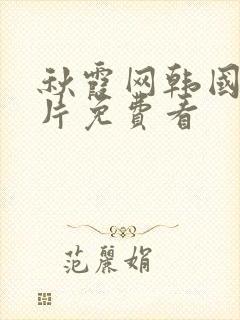 秋霞网韩国
片免費看
范麗娟